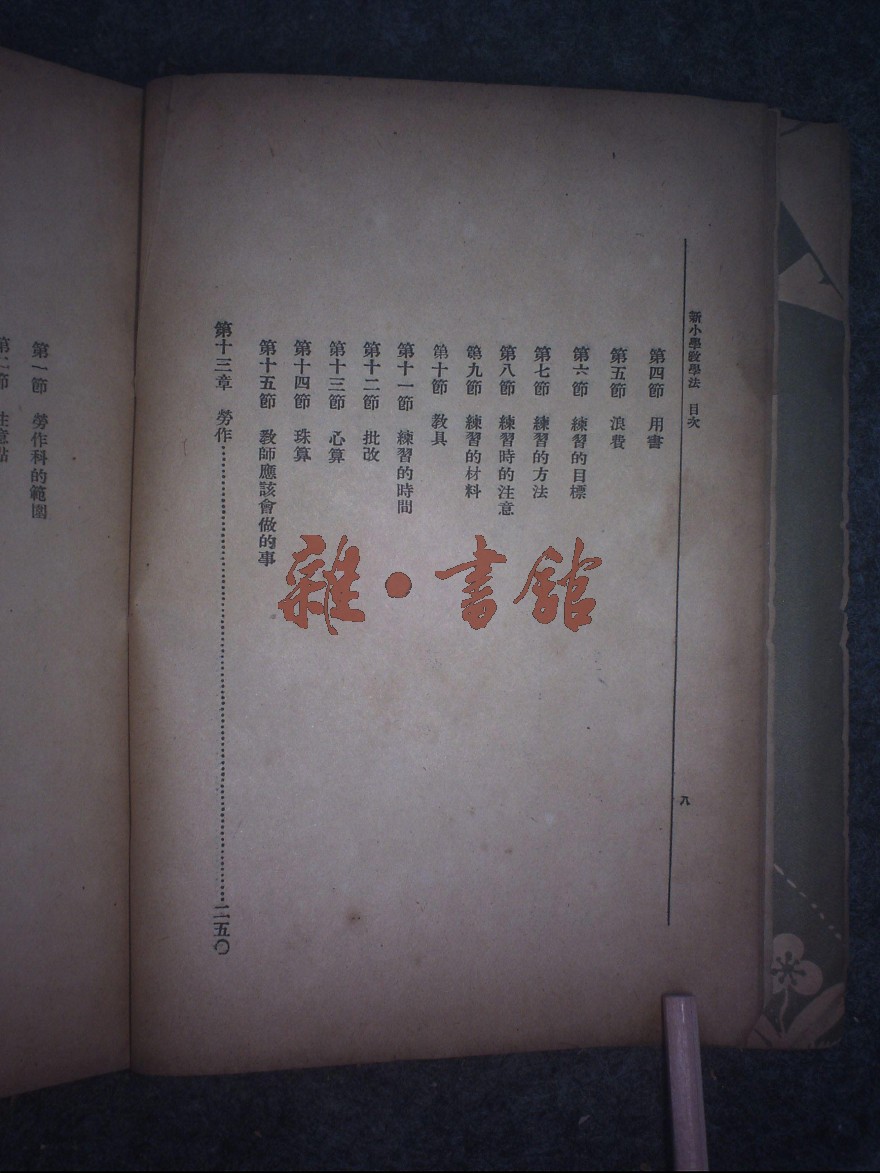 新小學教學法　目次
八
第四節　用書
第五節　浪費
第六節　練習的目標
第七節　練習的方法
第八節　練習時的注意
第九節　練習的材料
第十節　教具
第十一節　練習的時間
第十二節　批改
第十三節　心算
第十四節　珠算
第十五節　教師應該會做的事
第十三章　勞作……………………二五〇
第一節　勞作科的範圍
第二節　注意點
雜・書館